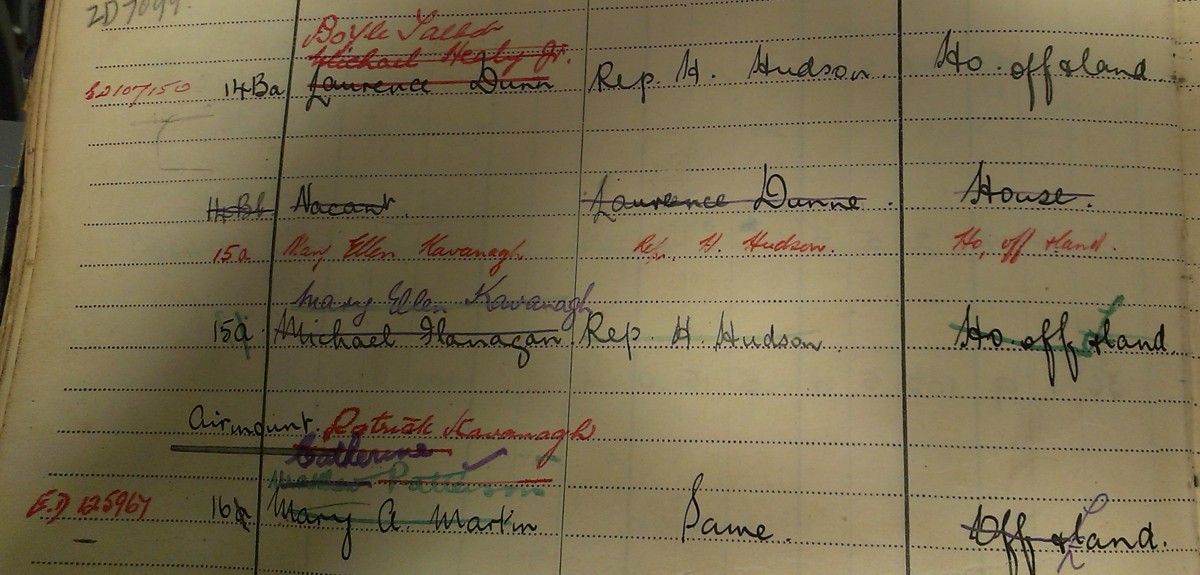 Boyle
Michael Healy Jr.
ED107150 14Ba Laurence Dunn Rep. H. Hudson. Ho. off & land
Vacant. Laurence Dunne. House.
15a Mary Ellen Kavanagh Rep. H. Hudson. Ho, off & land.
Mary Ellen Kavanagh
15a Michael Flanagan Rep. H. Hudson. Ho. off & land.
Airmount. Patrick Kavanagh
Catherine
Patterson
E.D 125967 16a Mary A Martin Same. Off & Land.